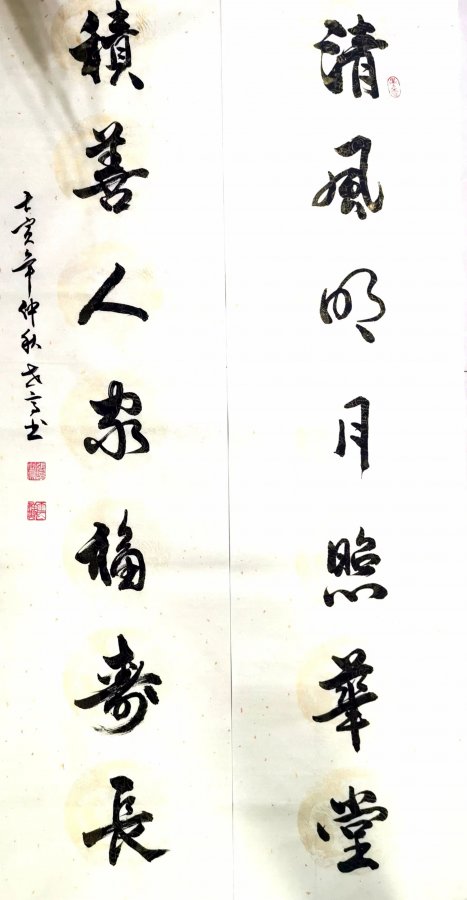 清風明月照華堂
積善人家福壽長
壬寅年仲秋